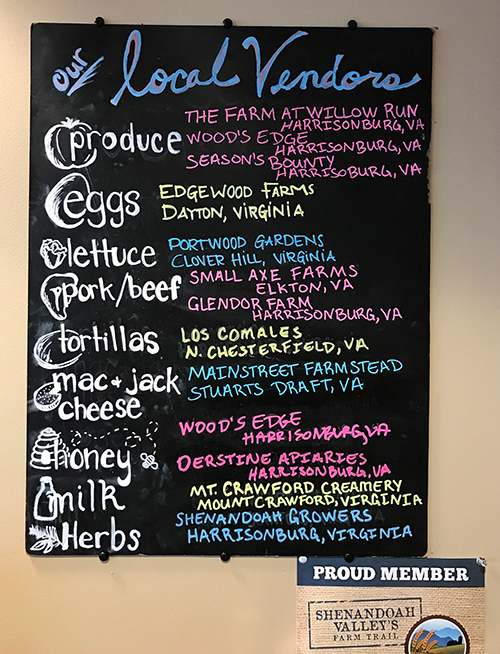 our Local Vendors
produce
THE FARM AT WILLOW RUN
HARRISONBURG, VA
WOOD'S EDGE
HARRISONBURG, VA
SEASON'S BOUNTY
HARRISOBURG, VA
eggs
EDGEWOOD FARMS
DAYTON, VIRGINIA
lettuce
PORTWOOD GARDENS
CLOVER HILL, VIRGINIA
pork/beef
SMALL AXE FARMS
ELKTON, VA
GLENDOR FARM
HARRISONBURG, VA
tortillas
LOS COMALES
N. CHESTERFIELD, VA
mac + jack
cheese
MAINSTREET FARMSTEAD
STUARTS DRAFT, VA
honey
WOOD'S EDGE
HARRISONBURG, VA
OERSTINE APIARIES
HARRISONBURG, VA
milk
MT. CRAWFORD CREAMERY
MOUNT CRAWFORD, VIRGINIA
Herbs
SHENANDOAH GROWERS
HARRISONBURG, VIRGINIA
PROUD MEMBER
SHENANDOAH
VALLEY'S
FARM TRAIL